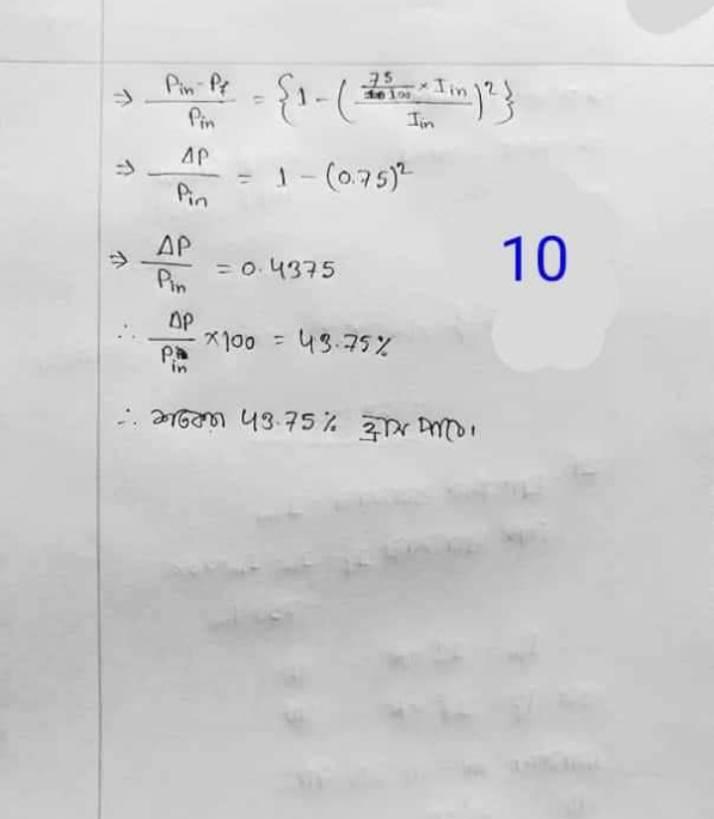 ⇒ (Pin - Pf)/Pin = {1 - ((75/100 × Iin)/Iin)²}
⇒ ΔP/Pin = 1 - (0.75)²
⇒ ΔP/Pin = 0.4375
10
∴ ΔP/Pin × 100 = 43.75%
∴ শতকরা 43.75% হ্রাস পাবে।